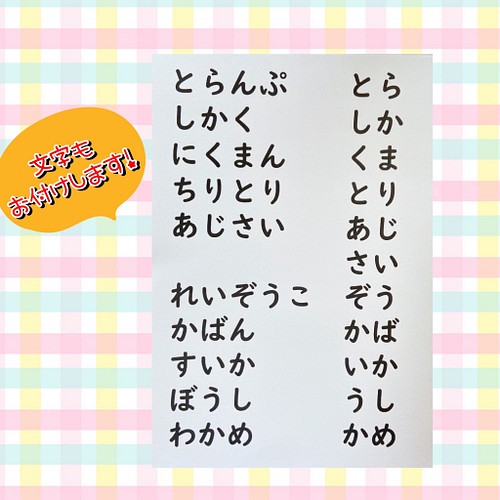 文字も
お付けします!
とらんぷ
しかく
にくまん
ちりとり
あじさい
れいぞうこ
かばん
すいか
ぼうし
わかめ
とら
しか
くま
とり
あじ
さい
ぞう
かば
いか
うし
かめ